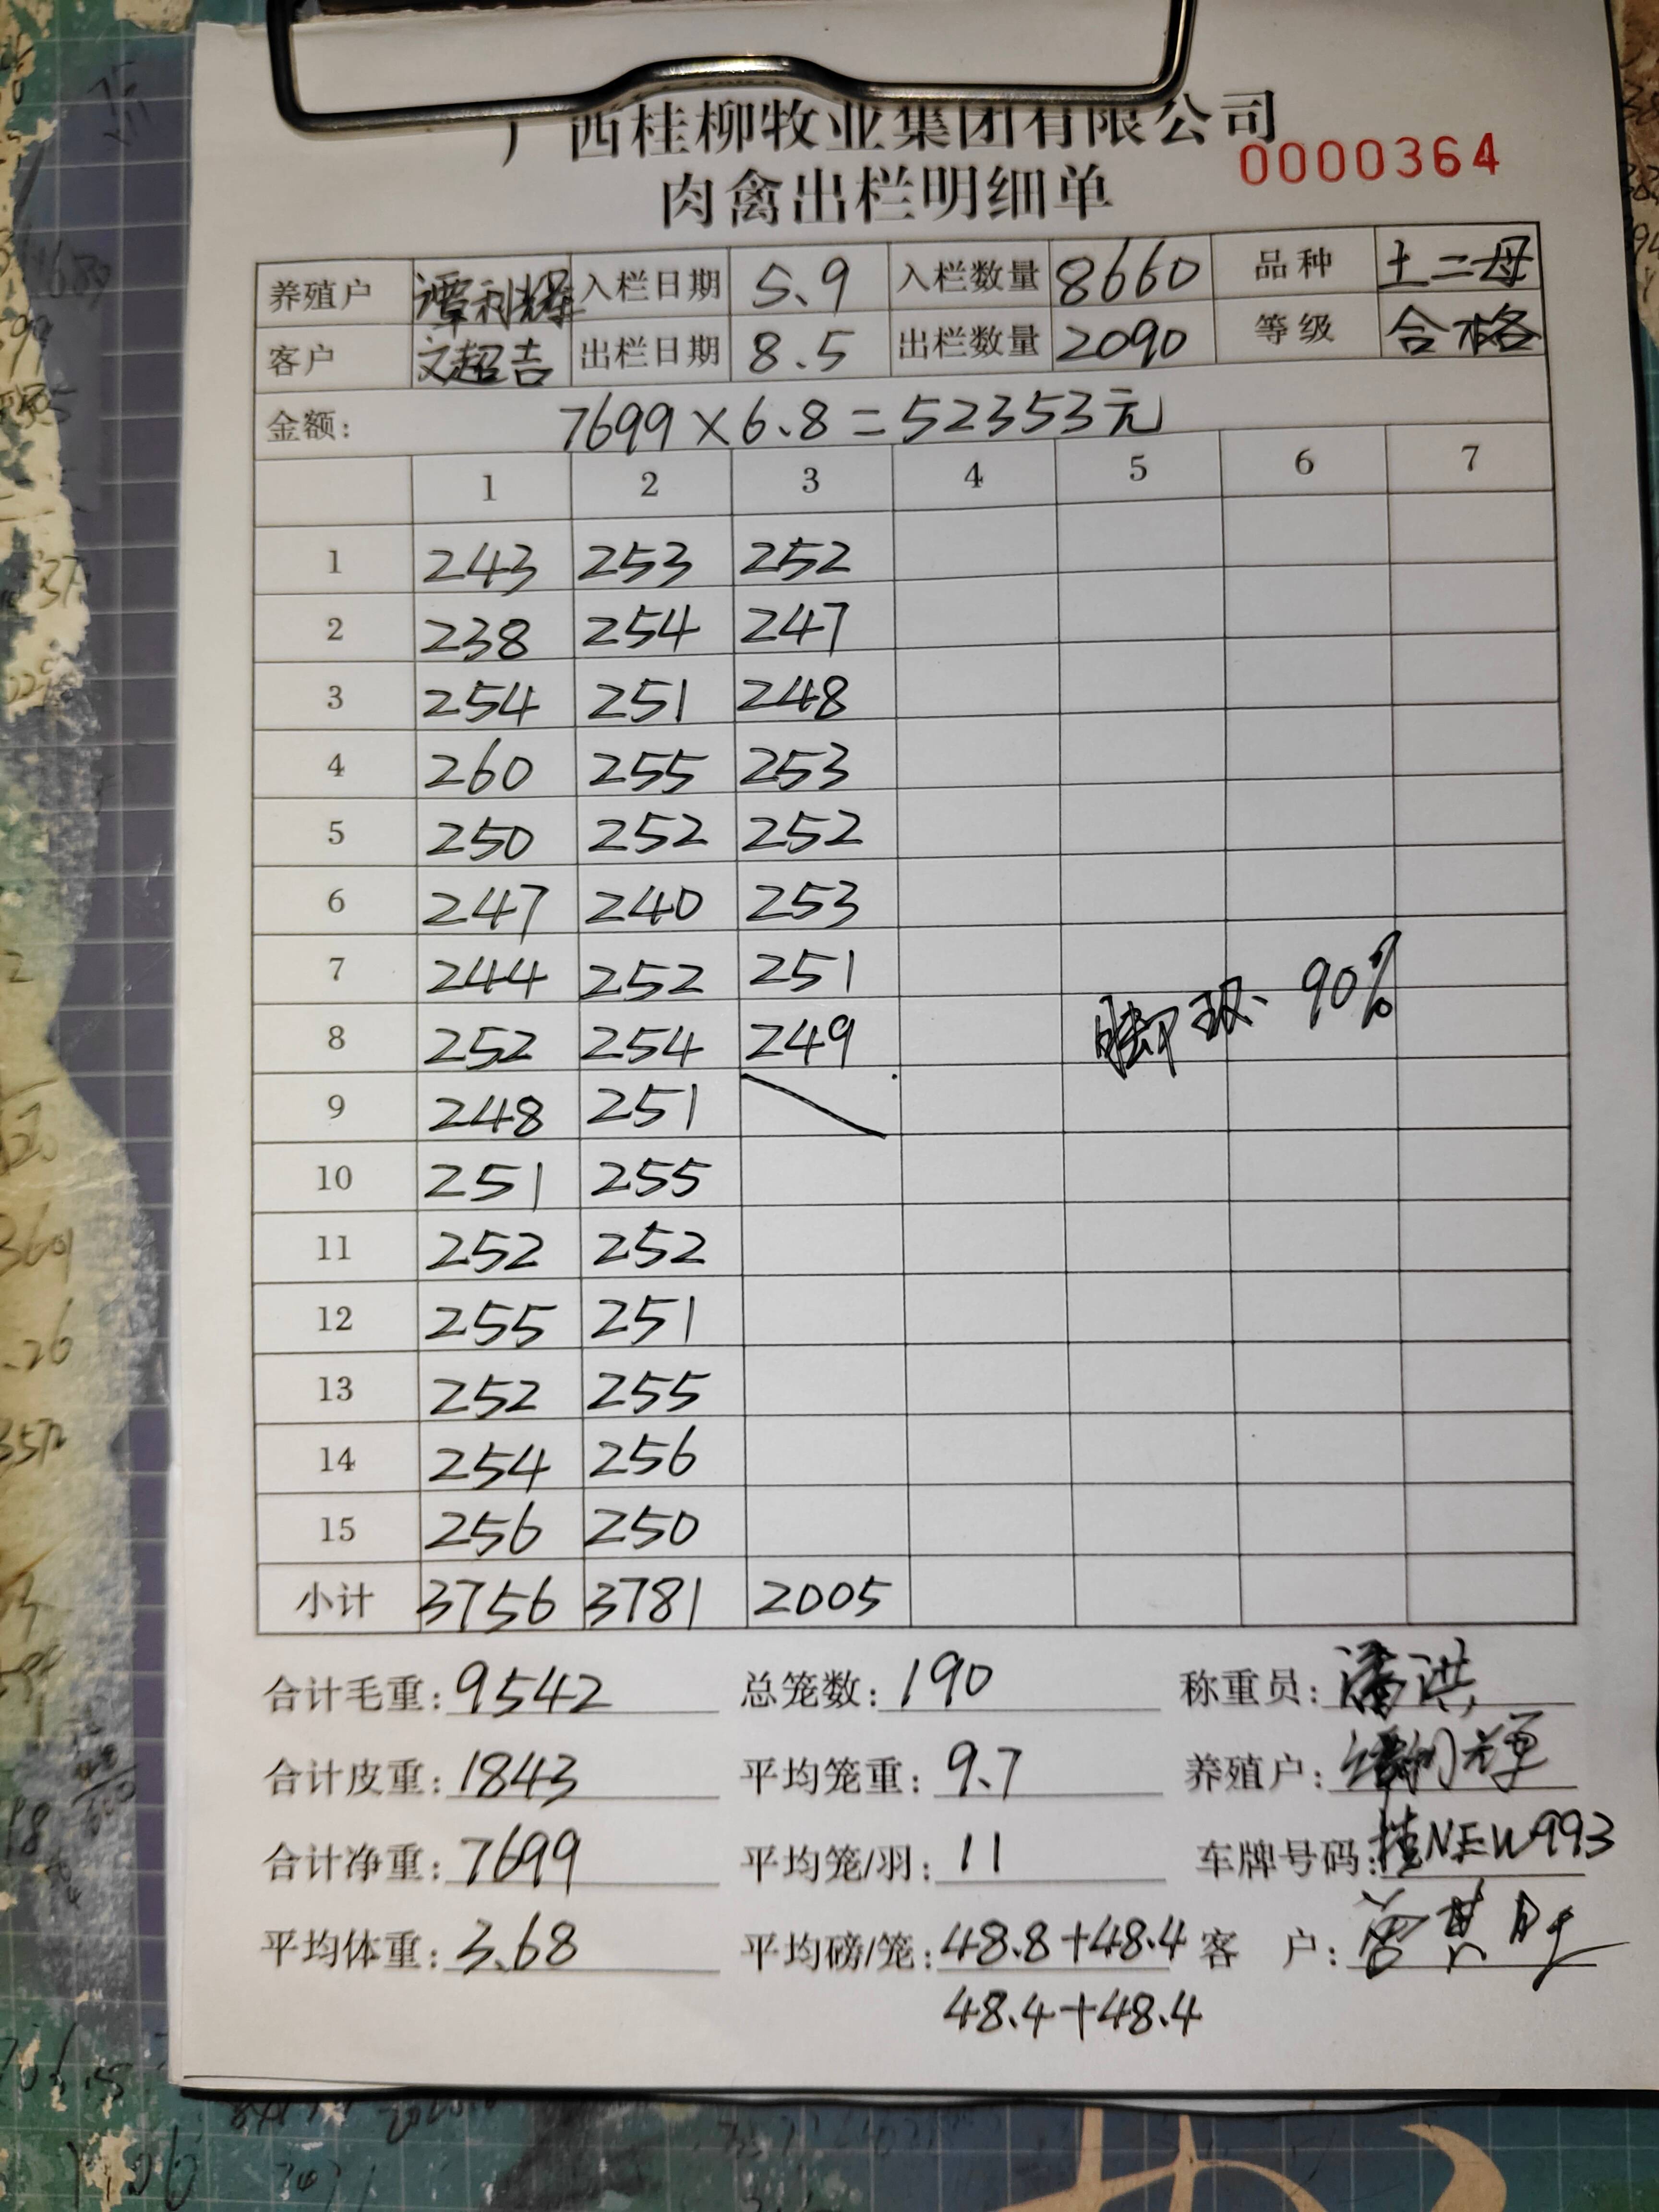 广西桂柳牧业集团有限公司
0000364
肉禽出栏明细单
养殖户 谭利辉 入栏日期 5.9 入栏数量 8660 品种 土二母
客户 文超吉 出栏日期 8.5 出栏数量 2090 等级 合格
金额: 7699×6.8=52353元
1 2 3 4 5 6 7
1 243 253 252
2 238 254 247
3 254 251 248
4 260 255 253
5 250 252 252
6 247 240 253
7 244 252 251
8 252 254 249
脚环 90%
9 248 251
10 251 255
11 252 252
12 255 251
13 252 255
14 254 256
15 256 250
小计 3756 3781 2005
合计毛重: 9542 总笼数: 190 称重员: 潘洪
合计皮重: 1843 平均笼重: 9.7 养殖户: 谭利辉
合计净重: 7699 平均笼/羽: 11 车牌号码: 桂NEW993
平均体重: 3.68 平均磅/笼: 48.8+48.4 客 户:
48.4+48.4